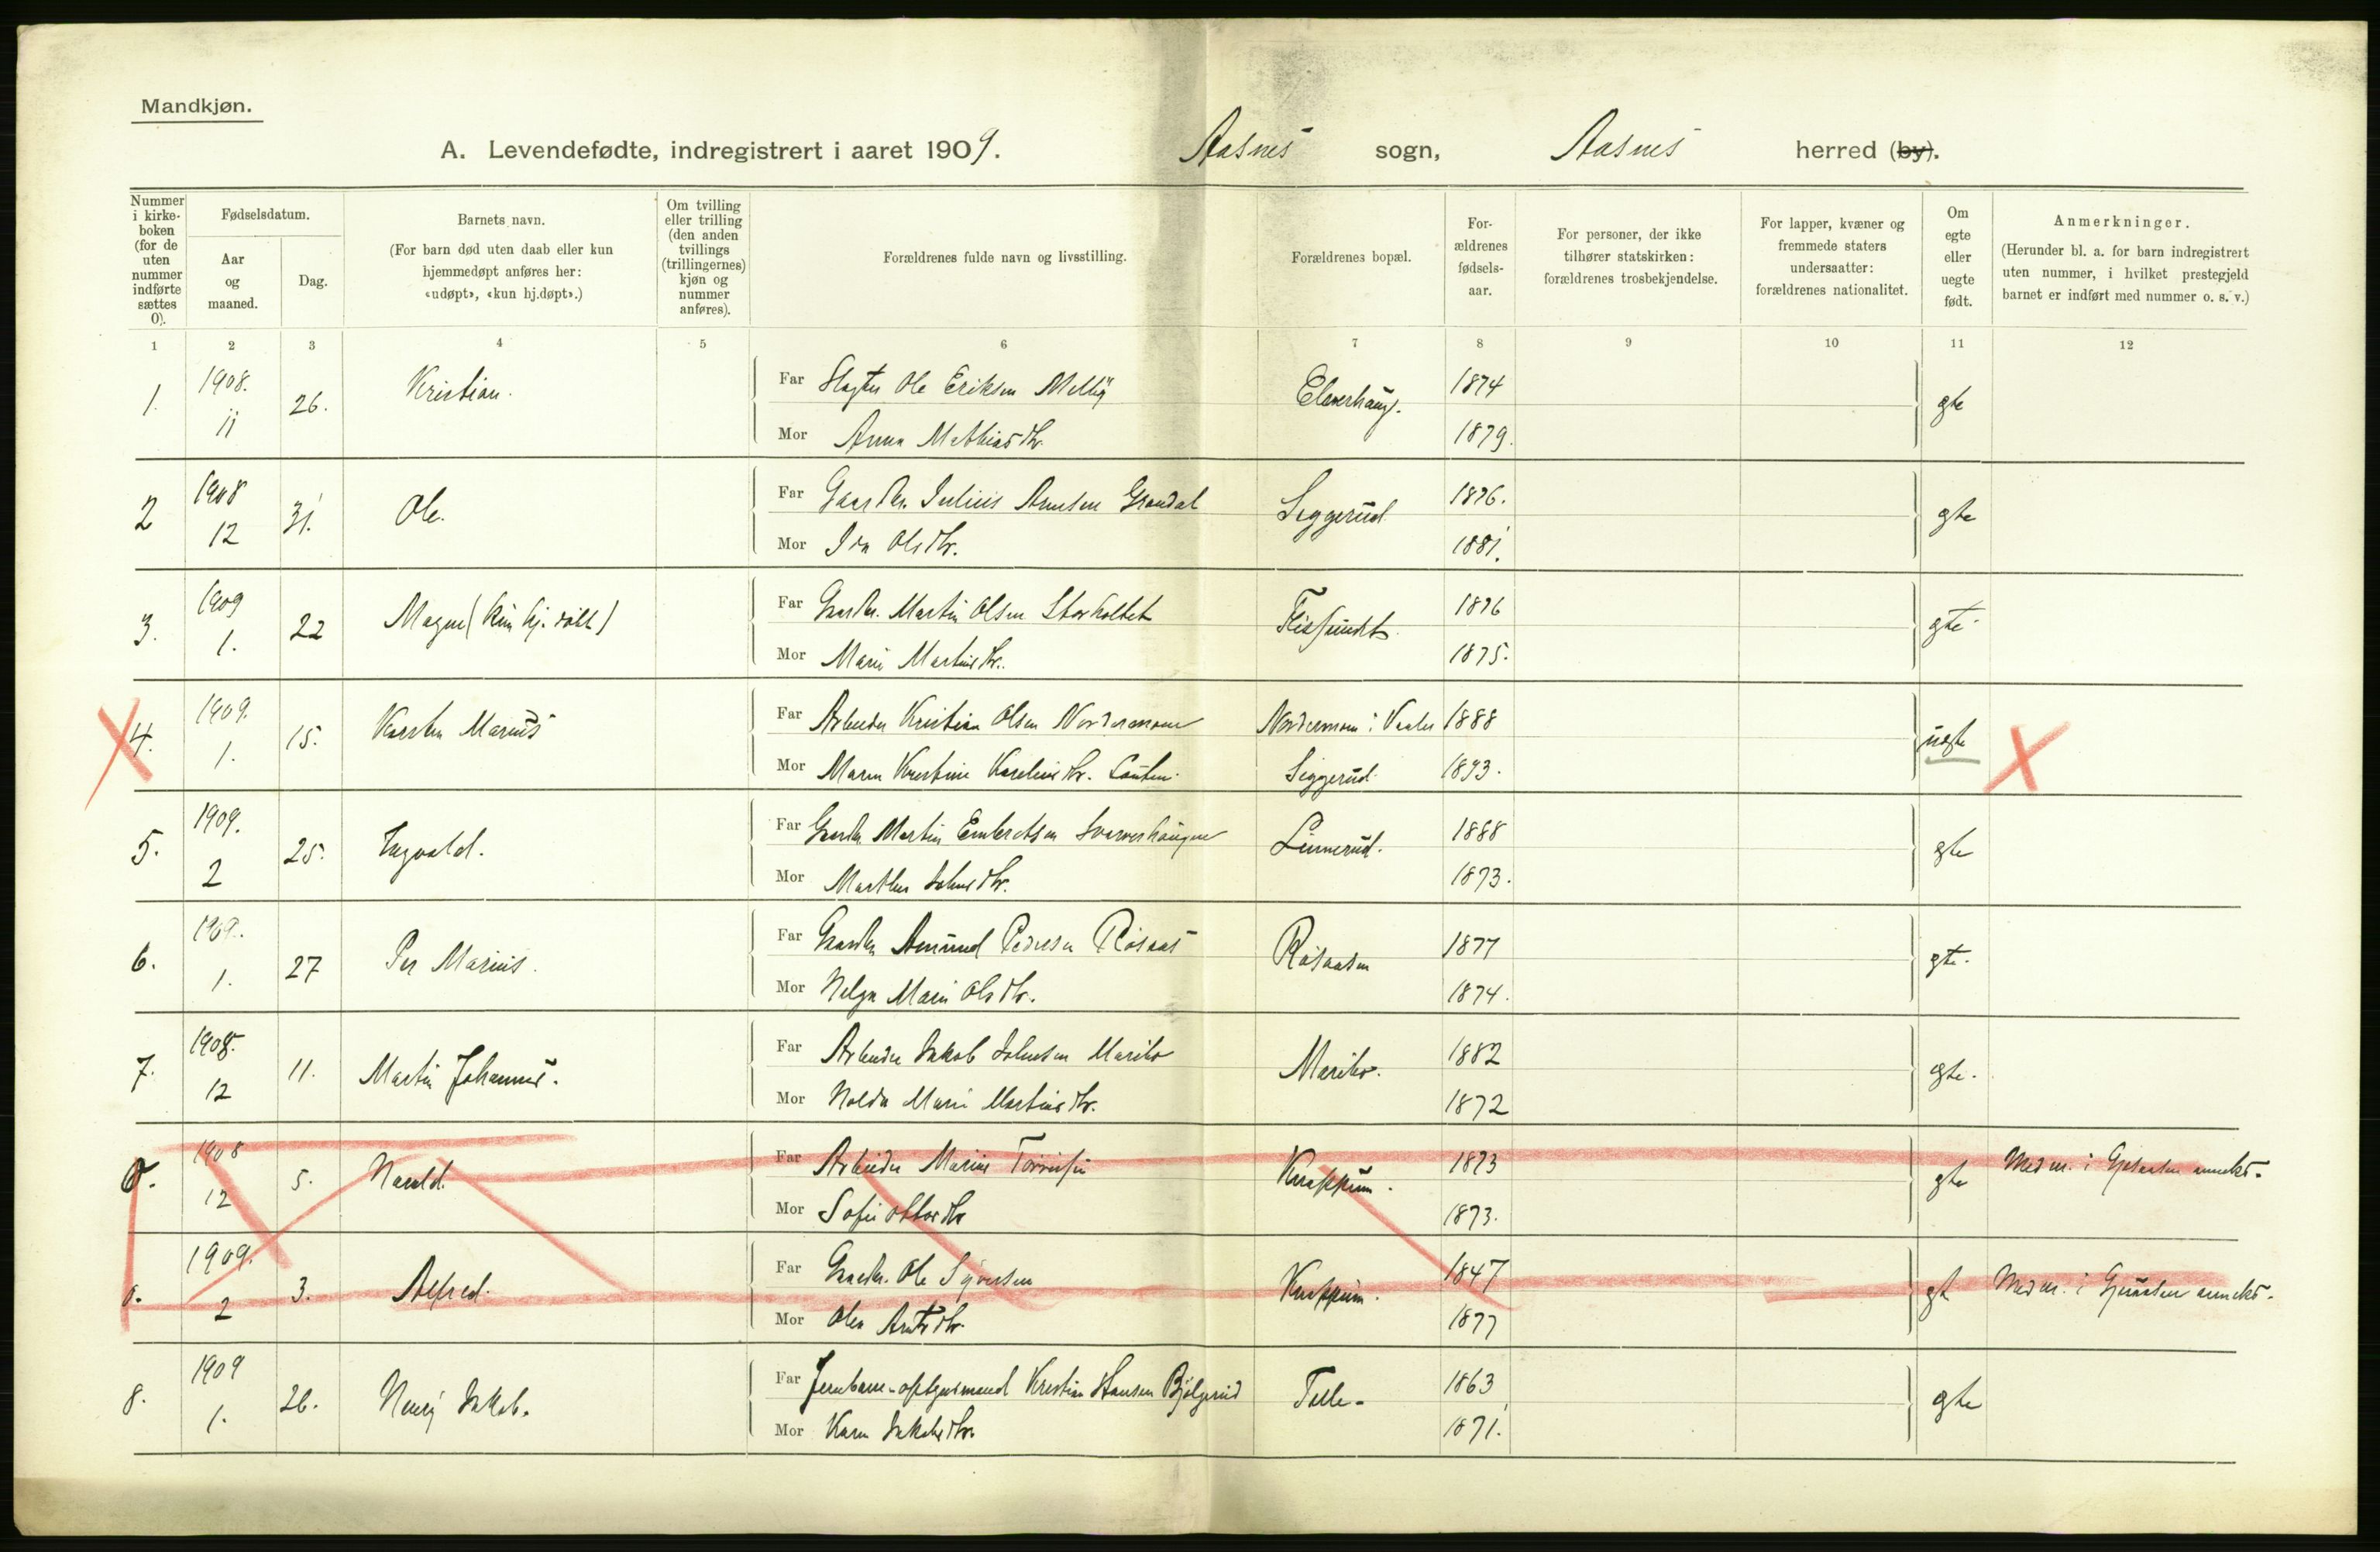 Mandkjøn.
A. Levendefødte, indregistrert i aaret 1909. Aasnes sogn, Aasnes herred (by).
Nummer i kirke-boken (for de uten nummer indførte sættes 0).
Fødselsdatum.
Aar og maaned.
Dag.
Barnets navn.
(For barn død uten daab eller kun hjemmedøpt anføres her: «udøpt», «kun hj.døpt».)
Om tvilling eller trilling (den anden tvillings (trillingernes) kjøn og nummer anføres).
Forældrenes fulde navn og livsstilling.
Forældrenes bopæl.
For-ældrenes fødsels-aar.
For personer, der ikke tilhører statskirken: forældrenes trosbekjendelse.
For lapper, kvæner og fremmede staters undersaatter: forældrenes nationalitet.
Om egte eller uegte født.
Anmerkninger.
(Herunder bl. a. for barn indregistrert uten nummer, i hvilket prestegjeld barnet er indført med nummer o. s. v.)
1 2 3 4 5 6 7 8 9 10 11 12
1. 1908. 11 26. Kristian. Far Ole Eriksen 1874 gte
Mor Anna Mathiasdtr. 1879.
2 1908 12 31. Ole. Far Gaardbr. Julius Arnesen Grandal Siggerud 1876. gte
Mor Ida Olsdtr. 1881.
3. 1909 1. 22 Magne (kun hj. døbt) Far Gaardbr. Martin Olsen Storholtet Flissundet 1876 gte
Mor Marie Martinsdtr. 1875.
4. 1909. 1. 15. Karsten Marius Far Arbeider Kristian Olsen Nordermoen Nordermoen i Vaaler 1888 uegte
Mor Maren Kristine Siggerud. 1893.
5. 1909. 2 25. Ingvald. Far Gaardbr. Martin Embretsen Linnerud. 1888 gte
Mor Marthe Johnsdtr. 1873.
6. 1909. 1. 27 Per Marius. Far Gaardbr. Amund Pedersen Røsaas Røsaasen 1877 gte.
Mor Helga Marie Olsdtr. 1874.
7. 1908. 12 11. Martin Johannes. Far Arbeider Jakob Johnsen Maribo Maribo. 1882 gte.
Mor Holda Marie Martinsdtr. 1872
0. 1908 12 5. Harald. Far Arbeider Marius Knappum. 1873 gte Med nr. i anneks.
Mor Sofie Ottosdtr 1873.
0. 1909. 2 3. Alfred. Far Gaardbr. Ole Syversen Knappum. 1847 gt Med nr. i anneks.
Mor Olea 1877
8. 1909 1. 26. Henry Jakob. Far Jernbane-opsynsmand Kristian Hansen Bjølgerud 1863 gte
Mor Karen Jakobsdtr. 1871.